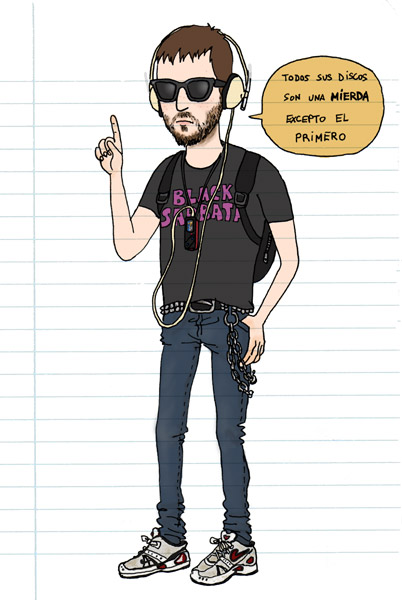 TODOS SUS DISCOS
SON UNA MIERDA
EXCEPTO EL
PRIMERO
BLACK
SABBATH